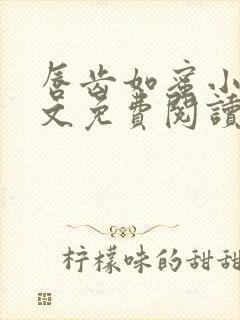 唇齿如蜜小
文免費閱讀
柠檬味的甜甜